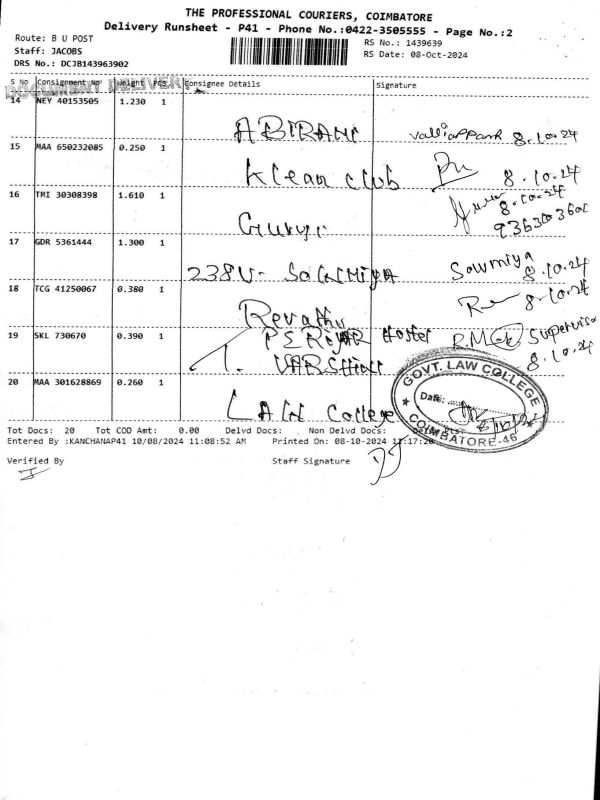 THE PROFESSIONAL COURIERS, COIMBATORE
Delivery Runsheet - P41 - Phone No.:0422-3505555 - Page No.:2
Route: B U POST
RS No.: 1439639
Staff: JACOBS
RS Date: 08-Oct-2024
DRS No.: DCJB143963902
S No Consignment No Weight PCS Consignee Details Signature
DOCUMENT DELIVERY
14 NEY 40153505 1.230 1 ABIRAMI Valliappank 8.10.24
15 MAA 650232085 0.250 1 klean club 8.10.24
16 TMI 30308398 1.610 1 8.10.24
17 GDR 5361444 1.300 1 238U- SOWMIYA Sowmiya 8.10.24
18 TCG 41250067 0.380 1 Revathy 8.10.24
19 SKL 730670 0.390 1 PERIYAR Hostel Supervisor
8.10.24
20 MAA 301628869 0.260 1 LAW College
GOVT. LAW COLLEGE
Date:
COIMBATORE-46
Tot Docs: 20 Tot COD Amt: 0.00 Delvd Docs: Non Delvd Docs:
Entered By :KANCHANAP41 10/08/2024 11:08:52 AM Printed On: 08-10-2024 11:17:20
Verified By Staff Signature